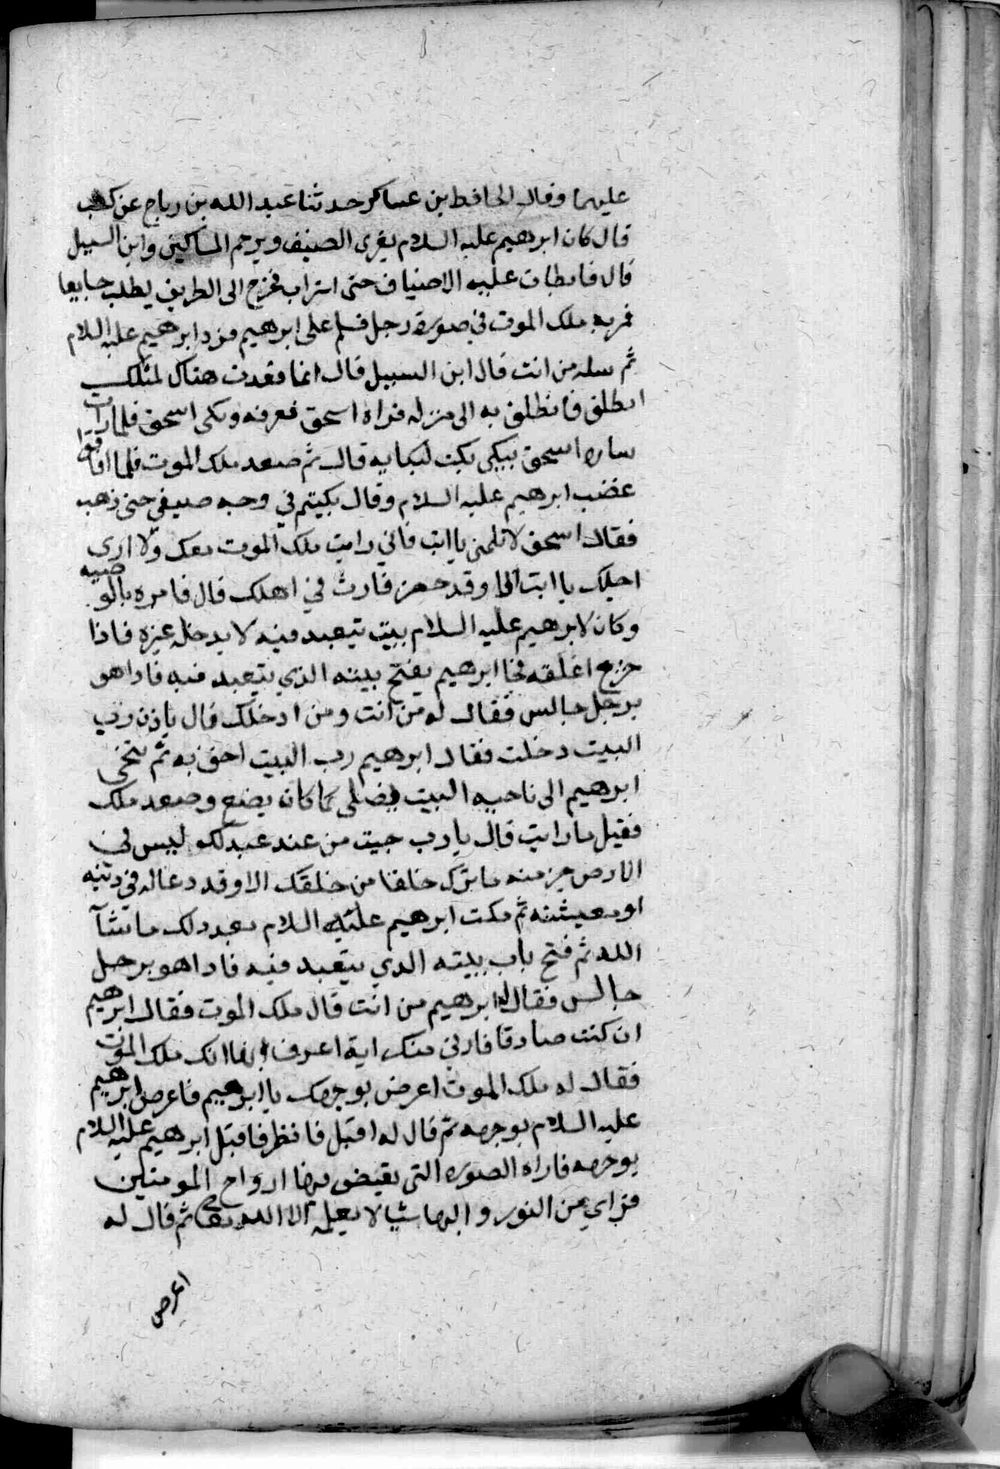 عليهما وقال الحافظ بن عساكر حدثنا عبد الله بن رباح عن كعب
قال كان ابرهيم عليه السلام يقري الضيف ويرحم المساكين وابن السبيل
قال فابطات عليه الاضياف حتى استراب فخرج الى الطريق يطلب جايعا
فمر به ملك الموت في صورة رجل فسلم على ابرهيم فرد ابرهيم عليه السلام
ثم سله من انت قال ابن السبيل قال انما قعدت هناك لمثلك
انطلق فانطلق به الى منزله فراه اسحق فعرفه وبكى اسحق فلما رات
ساره اسحق يبكي بكت لبكايه قال ثم صعد ملك الموت فلما افاقوا
غضب ابرهيم عليه السلام وقال بكيتم في وجه ضيفي حتى ذهب
فقال اسحق لا تلمني يا ابت فاني رايت ملك الموت معك ولا ارى
اجلك يا ابت الا وقد حضر فارث في اهلك قال فامره بالوصيه
وكان لابرهيم عليه السلام بيت يتعبد فيه لا يدخله غيره فاذا
خرج اغلقه فجا ابرهيم يفتح بيته الذي يتعبد فيه فاذا هو
برجل جالس فقال له من انت ومن ادخلك قال باذن رب
البيت دخلت فقال ابرهيم رب البيت احق به ثم تنحى
ابرهيم الى ناحيه البيت فصلى كما كان يصنع وصعد ملك
فقيل ما رايت قال يا رب جيت من عند عبد لك ليس في
الارض خير منه ما ترك خلقا من خلقك الا وقد دعا له في دينه
او معيشته ثم مكث ابرهيم عليه السلام بعد ذلك ما شآ
الله ثم فتح باب بيته الذي يتعبد فيه فاذا هو برجل
جالس فقال له ابرهيم من انت قال ملك الموت فقال ابرهيم
ان كنت صادقا فارني منك اية اعرف بها انك ملك الموت
فقال له ملك الموت اعرض بوجهك يا ابرهيم فاعرض ابرهيم
عليه السلام بوجهه ثم قال له اقبل فانظر فاقبل ابرهيم عليه السلام
بوجهه فاراه الصوره التي يقبض بها ارواح المومنين
فراي من النور و البها شيا لا يعلمه الا الله تعالى ثم قال له
اعرض